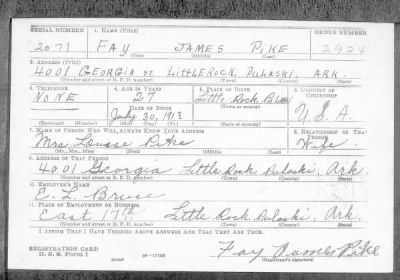 SERIAL NUMBER 1. NAME (Print) ORDER NUMBER
2071 FAY JAMES PIKE 2924
(First) (Middle) (Last)
2. ADDRESS (Print)
4001 GEORGIA ST. LITTLE ROCK, PULASKI, ARK
(Number and street or R. F. D. number) (Town) (County) (State)
3. TELEPHONE 4. AGE IN YEARS 5. PLACE OF BIRTH 6. COUNTRY OF CITIZENSHIP
NONE 27 Little Rock
DATE OF BIRTH (Town or county)
July 30, 1913 U.S.A.
(Exchange) (Number) (Mo.) (Day) (Yr.) (State or country)
7. NAME OF PERSON WHO WILL ALWAYS KNOW YOUR ADDRESS 8. RELATIONSHIP OF THAT PERSON
Mrs. Louise Pike Wife
(Mr., Mrs., Miss) (First) (Middle) (Last)
9. ADDRESS OF THAT PERSON
4001 Georgia Little Rock, Pulaski, Ark.
(Number and street or R. F. D. number) (Town) (County) (State)
10. EMPLOYER'S NAME
E. L. Bruce
11. PLACE OF EMPLOYMENT OR BUSINESS
East 17th Little Rock, Pulaski, Ark.
(Number and street or R. F. D. number) (Town) (County) (State)
I AFFIRM THAT I HAVE VERIFIED ABOVE ANSWERS AND THAT THEY ARE TRUE.
REGISTRATION CARD Fay James Pike
D. S. S. Form 1 (over) (Registrant's signature)